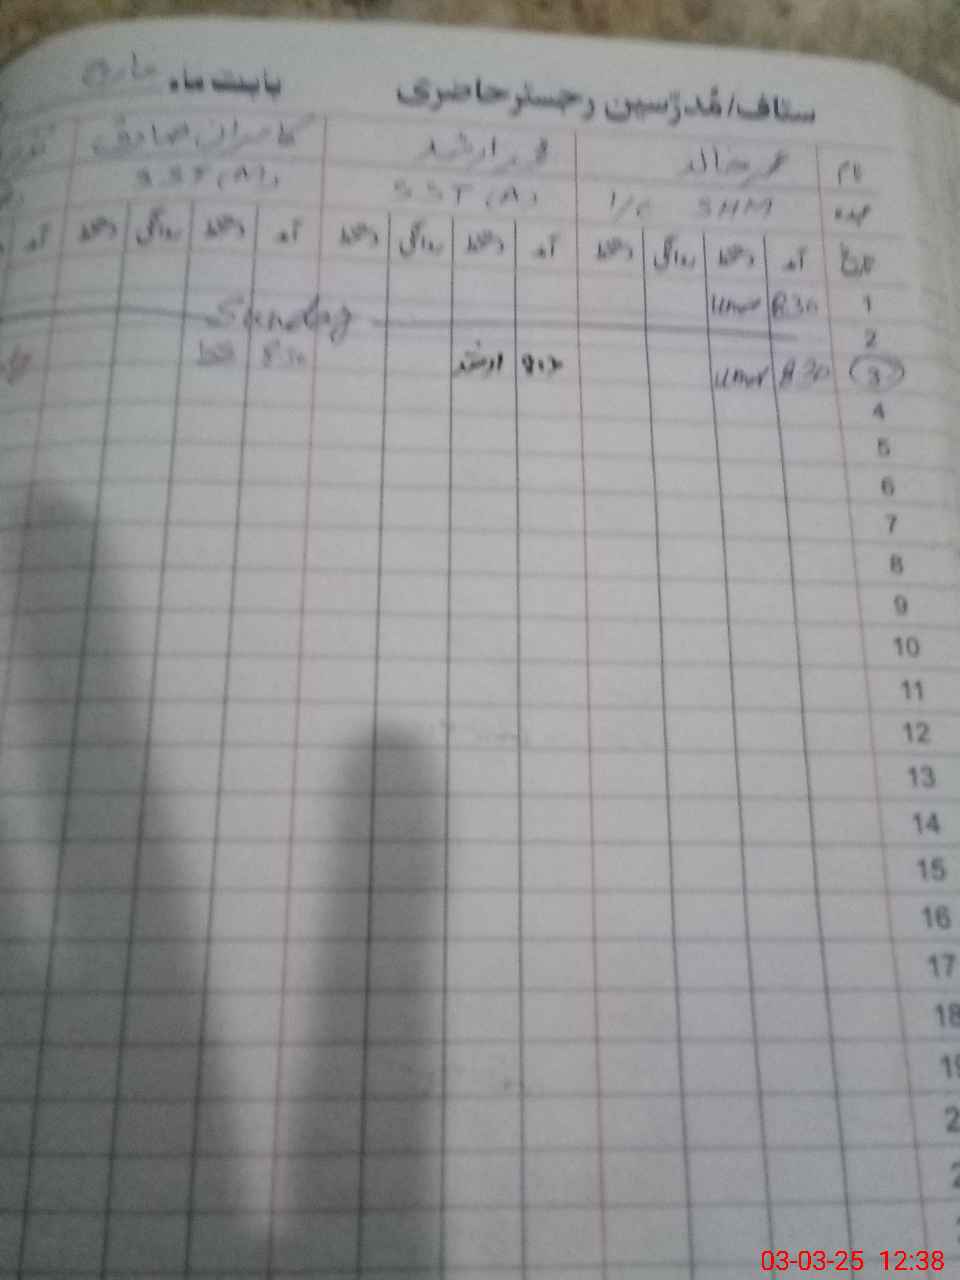 سٹاف/مُدرّسین رجسٹر حاضری بابت ماہ مارچ
نام عمر خالد محمد ارشد کامران صادق
عہدہ I/C SHM SST (A) SST (A)
تاریخ آمد دستخط روانگی دستخط آمد دستخط روانگی دستخط آمد دستخط روانگی دستخط آمد
1 8:30 Umar
2 Sunday
3 8:30 Umar ارشد 8:30
4
5
6
7
8
9
10
11
12
13
14
15
16
17
18
03-03-25 12:38